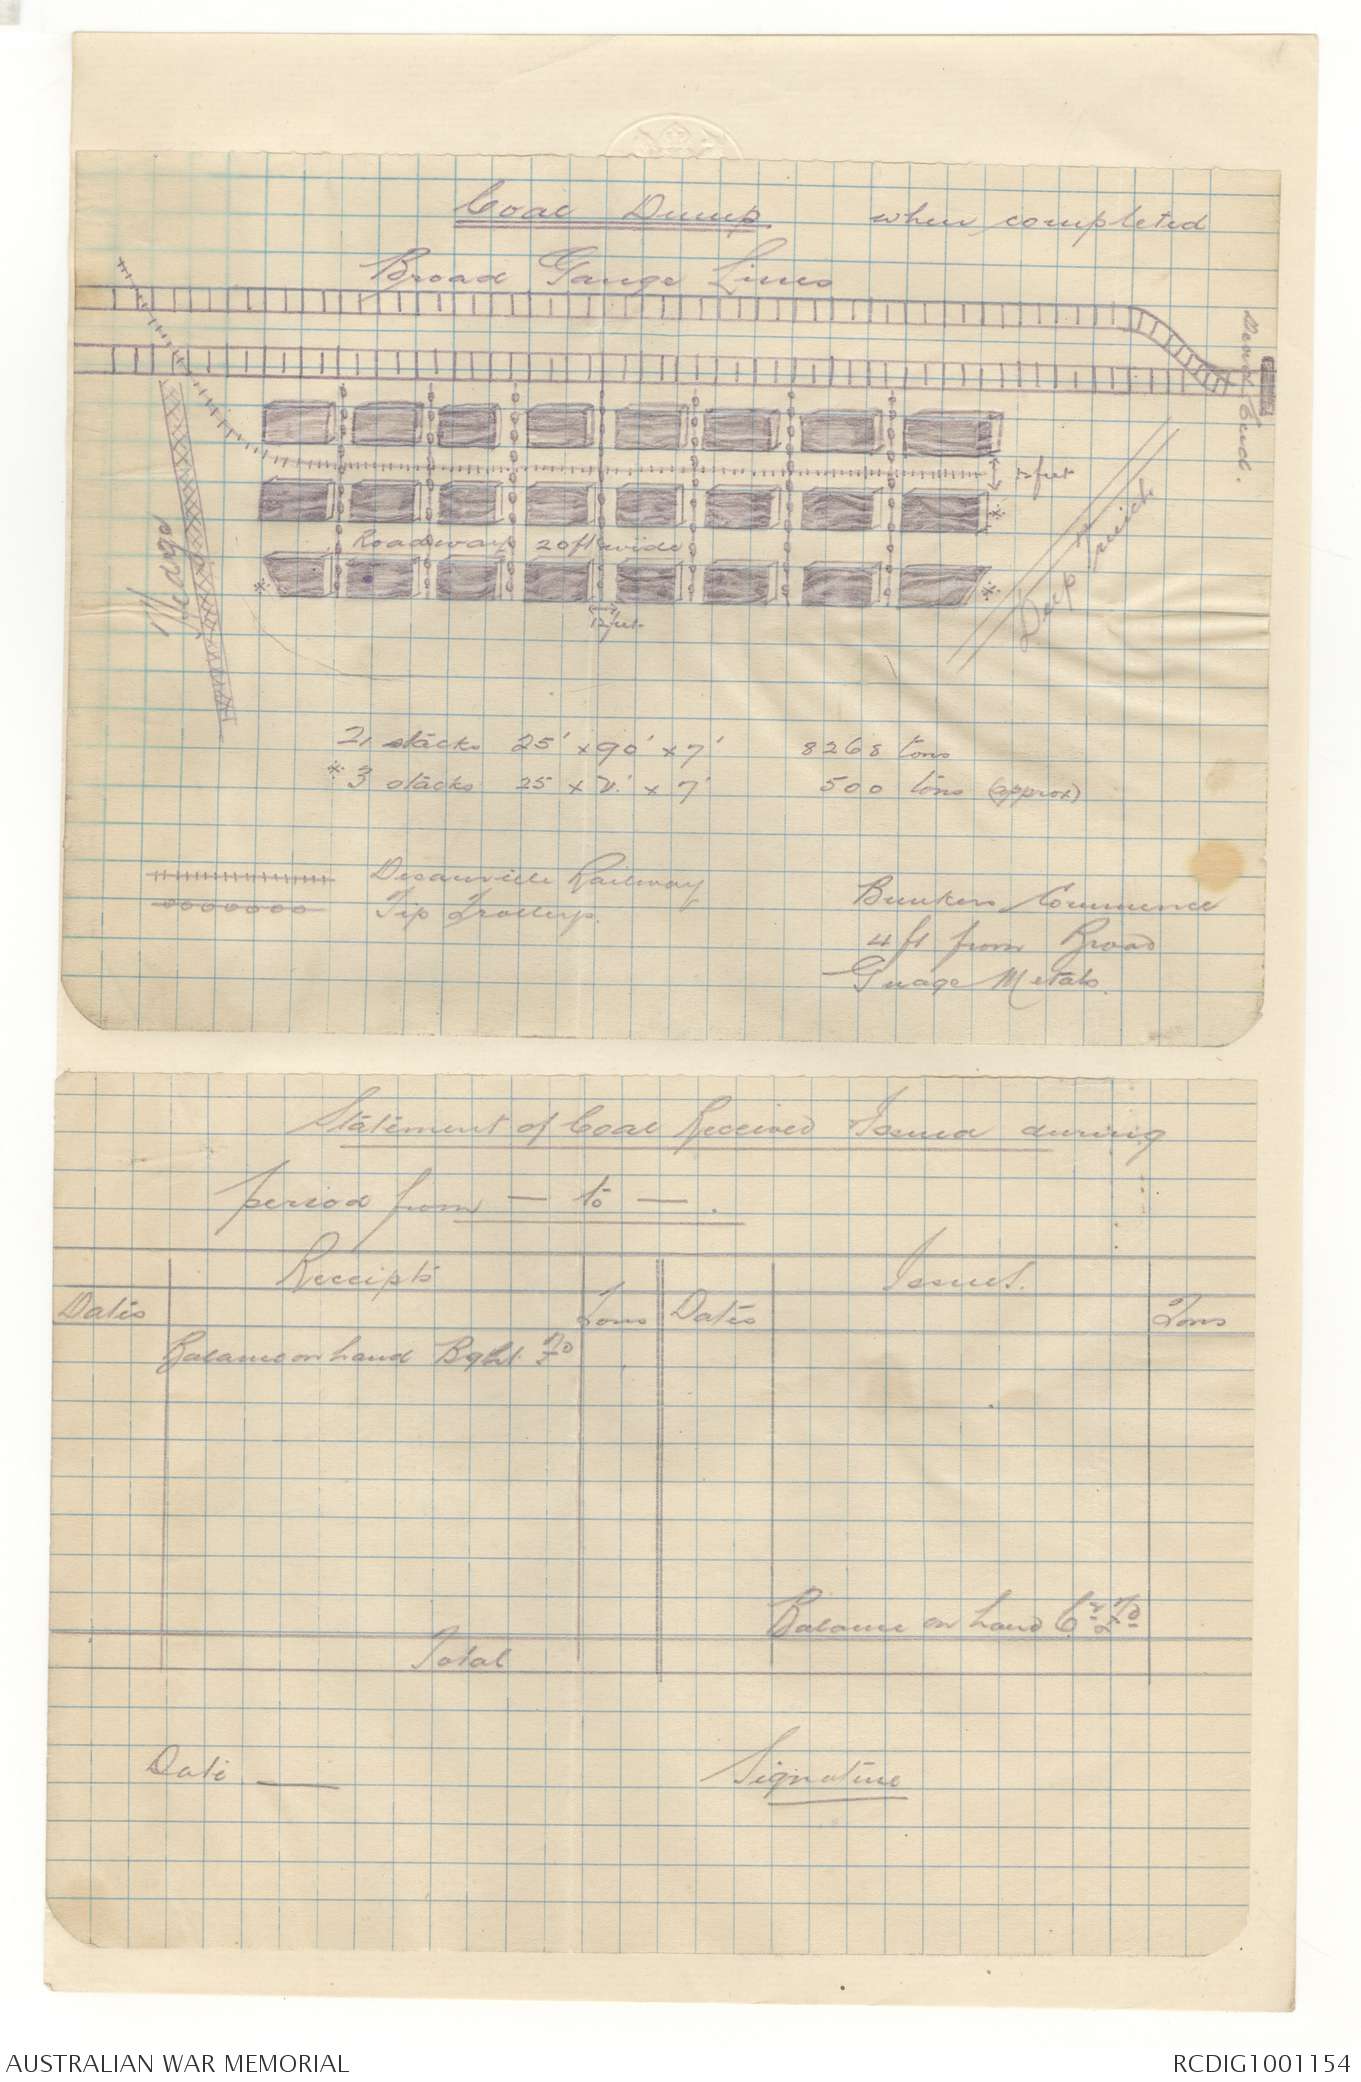 Coal Dump when completed
Broad Gauge Lines
Dead End.
12 feet
Hedge
Roadway 20 ft wide
Deep Trench
12 feet
21 stacks 25' x 90' x 7' 8268 tons
* 3 stacks 25 x x 7' 500 tons (approx)
Decauville Railway
Tip Trolleys.
Bunkers Commence
4 ft from Broad
Guage Metals.
Statement of Coal Received Issued during
period from — to — .
Receipts Issues.
Dates Tons Dates Tons
Balance on hand Bght. Fd
Balance on hand
Total
Date —— Signature
AUSTRALIAN WAR MEMORIAL RCDIG1001154